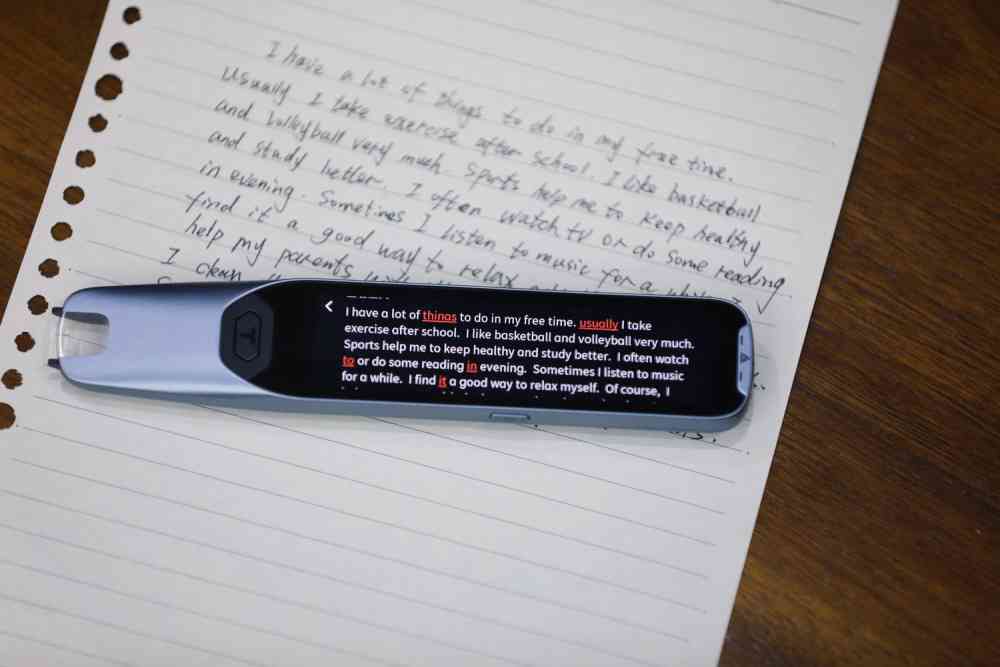 I have a lot of things to do in my free time.
Usually I take exercise after school. I like basketball
and volleyball very much. Sports help me to keep healthy
and study better. I often watch tv or do some reading
in evening. Sometimes I listen to music for a while I
find it a good way to relax
help my parents
I clean
I have a lot of thinas to do in my free time. usually I take
exercise after school. I like basketball and volleyball very much.
Sports help me to keep healthy and study better. I often watch
to or do some reading in evening. Sometimes I listen to music
for a while. I find it a good way to relax myself. Of course, I